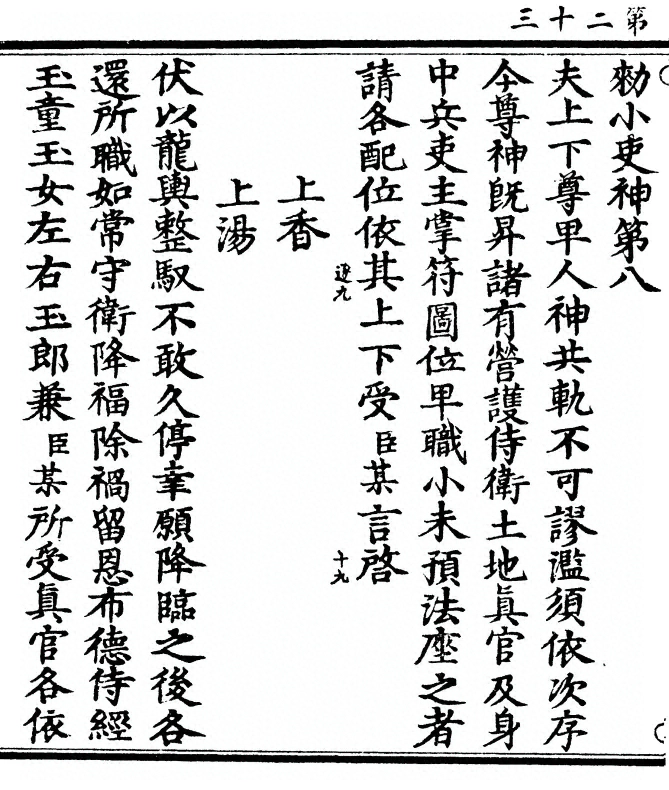 第二十三
勑小吏神第八
夫上下尊卑人神共軌不可謬濫須依次序
今尊神旣昇諸有營護侍衛土地眞官及身
中兵吏主掌符圖位卑職小未預法座之者
請各配位依其上下受臣某言啓
遊九
十九
上香
上湯
伏以龍輿整馭不敢久停幸願降臨之後各
還所職如常守衛降福除禍留恩布德侍經
玉童玉女左右玉郎兼臣某所受眞官各依